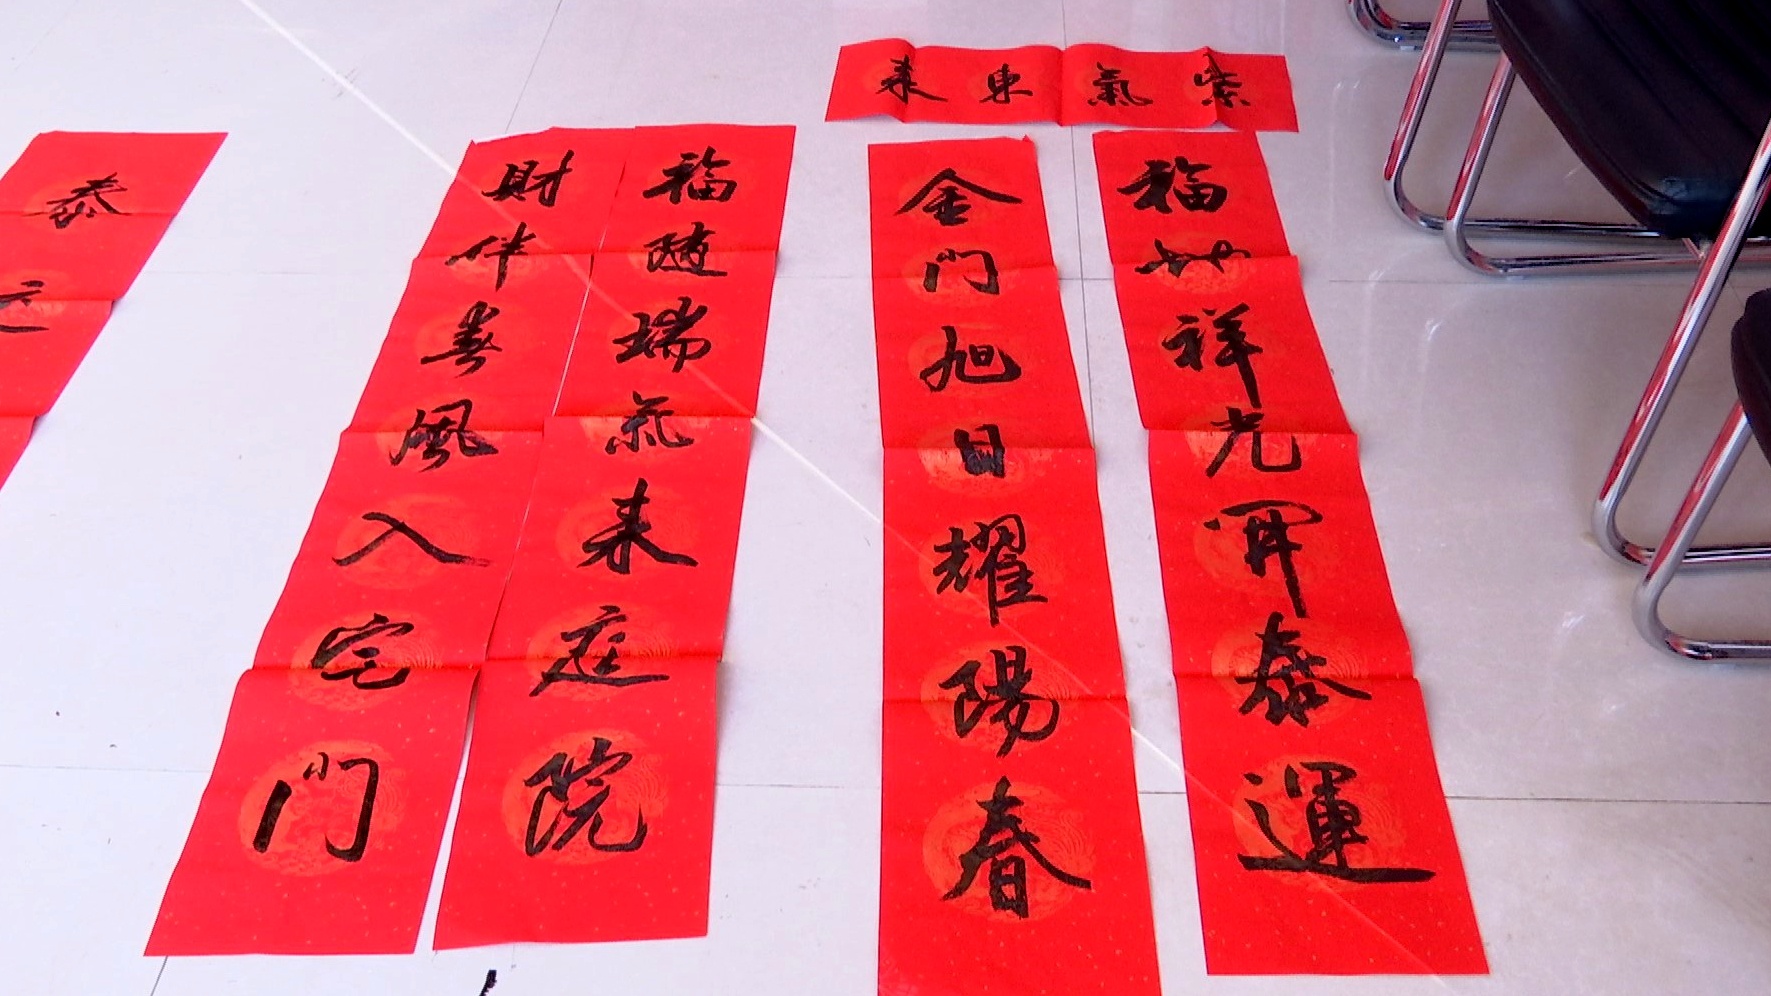 紫氣東来
福地祥光開泰運
金門旭日耀陽春
福随瑞氣来庭院
財伴春風入宅门
泰